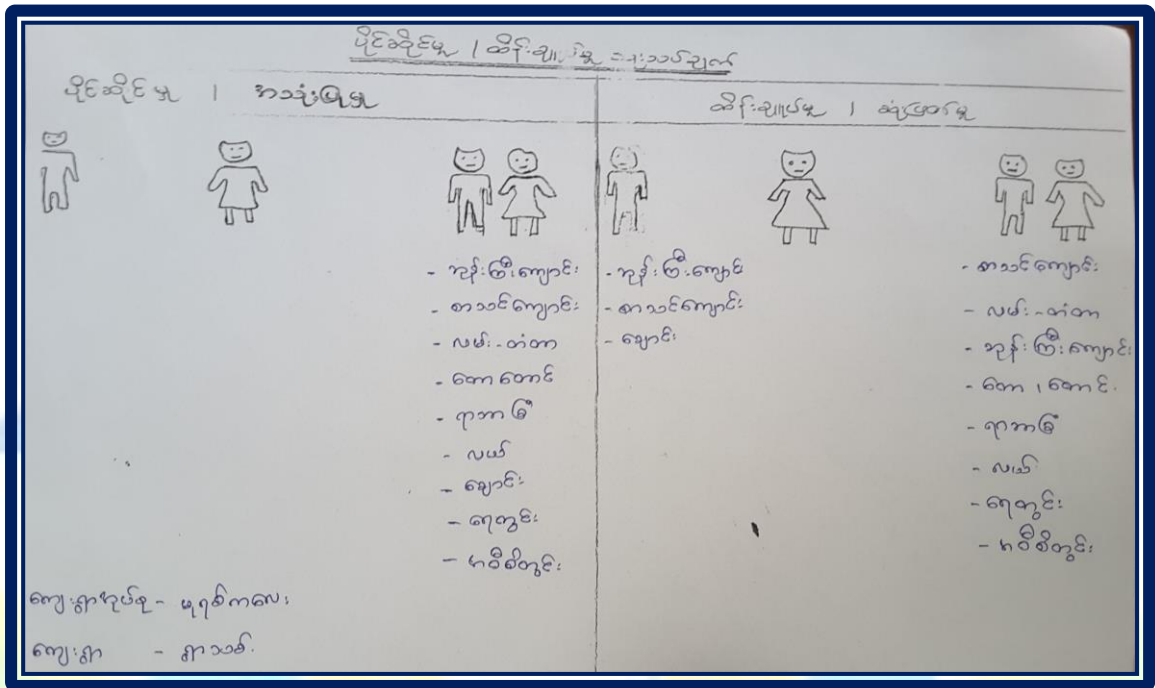 ပိုင်ဆိုင်မှု / ထိန်းချုပ်မှု
ပိုင်ဆိုင်မှု / အသုံးပြုမှု
ထိန်းချုပ်မှု / ဆုံးဖြတ်မှု
- ဘုန်းကြီးကျောင်း
- စာသင်ကျောင်း
- လမ်း-တံတာ
- တောတောင်
- ရာဘာခြံ
- လယ်
- ချောင်း
- ရေတွင်း
- အဝီစိတွင်း
- ဘုန်းကြီးကျောင်း
- စာသင်ကျောင်း
- ချောင်း
- စာသင်ကျောင်း
- လမ်း-တံတာ
- ဘုန်းကြီးကျောင်း
- တော၊တောင်
- ရာဘာခြံ
- လယ်
- ရေတွင်း
- အဝီစိတွင်း
ကျေးရွာအုပ်စု -
ကျေးရွာ - ရွာသစ်